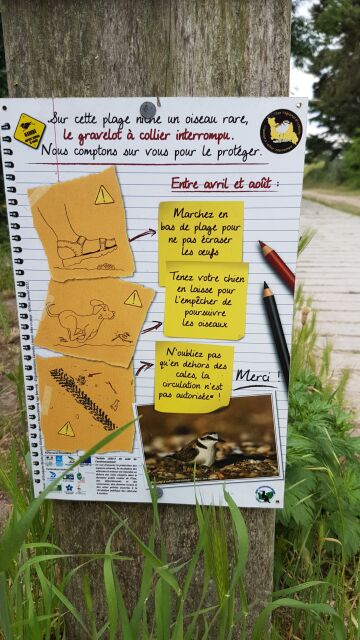 Sur cette plage niche un oiseau rare,
le gravelot à collier interrompu.
Nous comptons sur vous pour le protéger.
Entre avril et août :
Marchez en
bas de plage pour
ne pas écraser
les œufs
Tenez votre chien
en laisse pour
l'empêcher de
poursuivre
les oiseaux
N'oubliez pas
qu'en dehors des
cales, la
circulation n'est
pas autorisée* !
Merci !